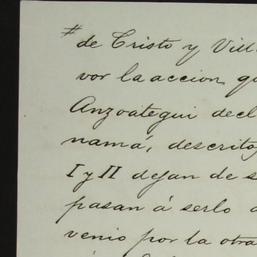 # de Cristo y Vill
vor la accion qu
Anzoategui decl
namá, descrito
I y II dejan de s
pasan á serlo
venio por la otra